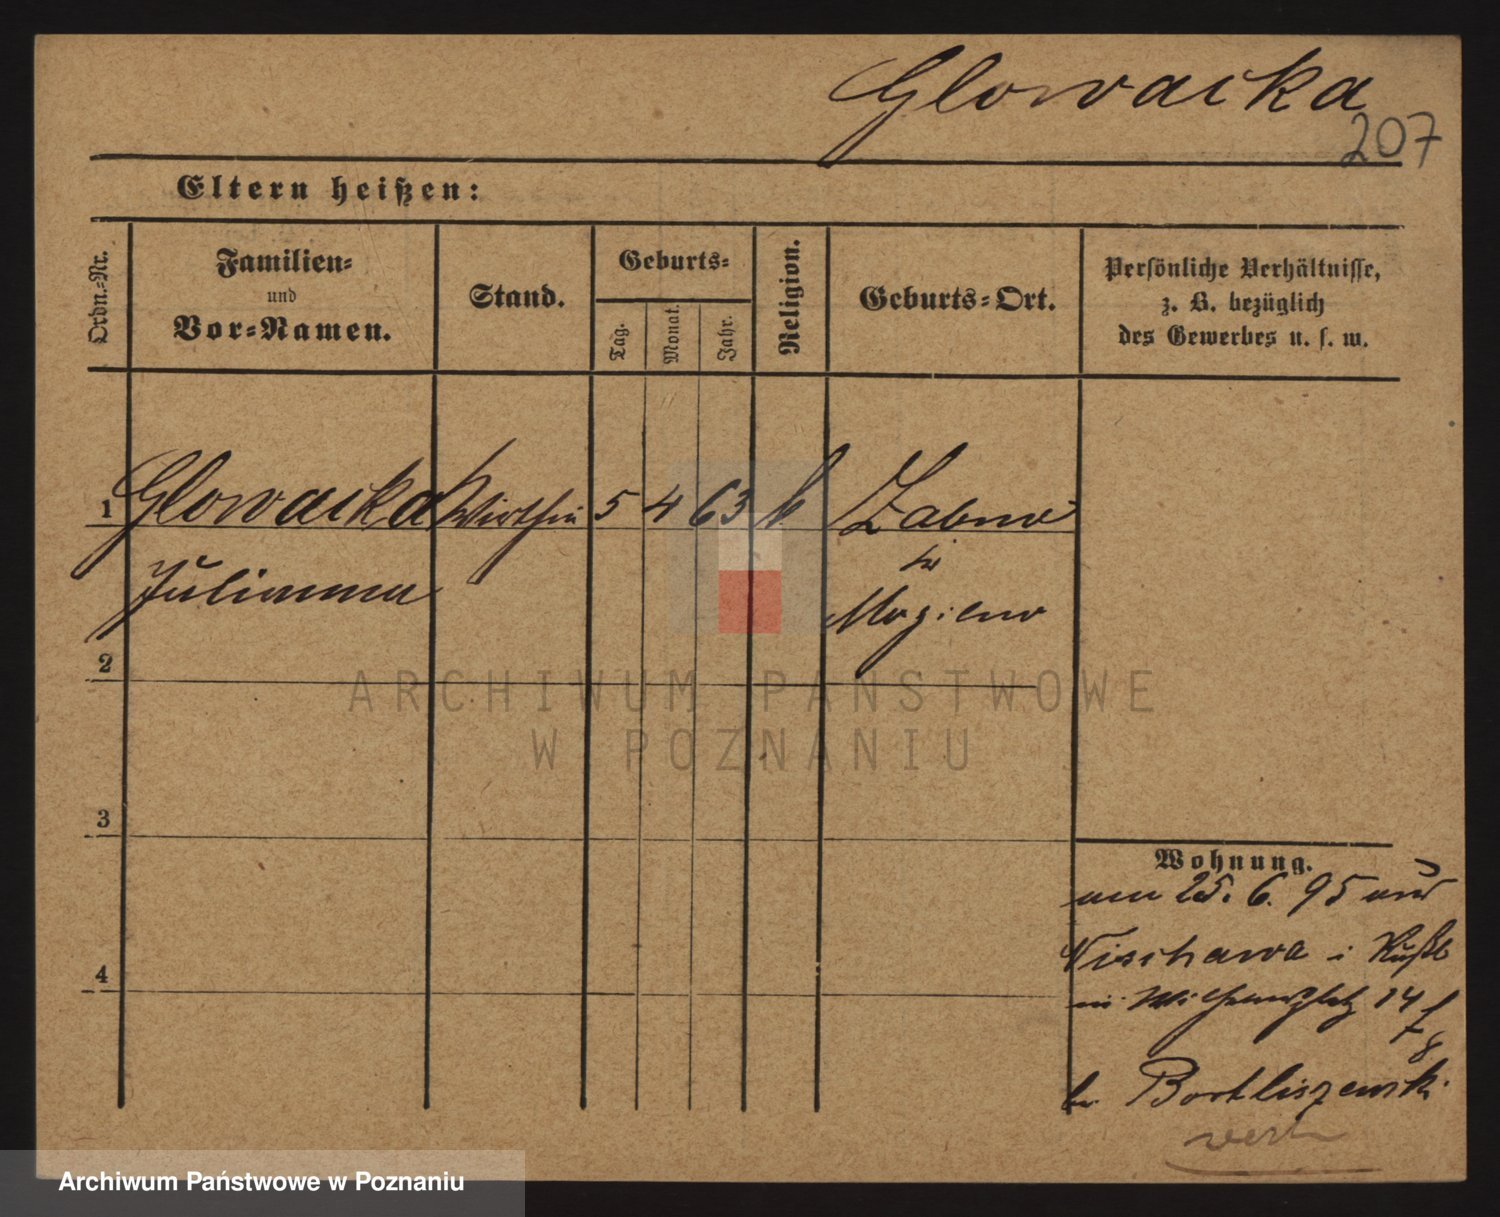 Glowacka
207
Eltern heißen:
Ordn.-Nr.
Familien-
und
Vor-Namen.
Stand.
Geburts-
Tag.
Monat.
Jahr.
Religion.
Geburts-Ort.
Persönliche Verhältnisse,
z. B. bezüglich
des Gewerbes u. s. w.
1 Glowacka Wirthin 5 4 63 k Zabno
Julianna
in
Mogilno
2
ARCHIWUM PAŃSTWOWE
W POZNANIU
3
Wohnung.
am 25. 6. 95 aus
i Rußl
4
in Wilhelmsplatz 14
b.
verh
Archiwum Państwowe w Poznaniu